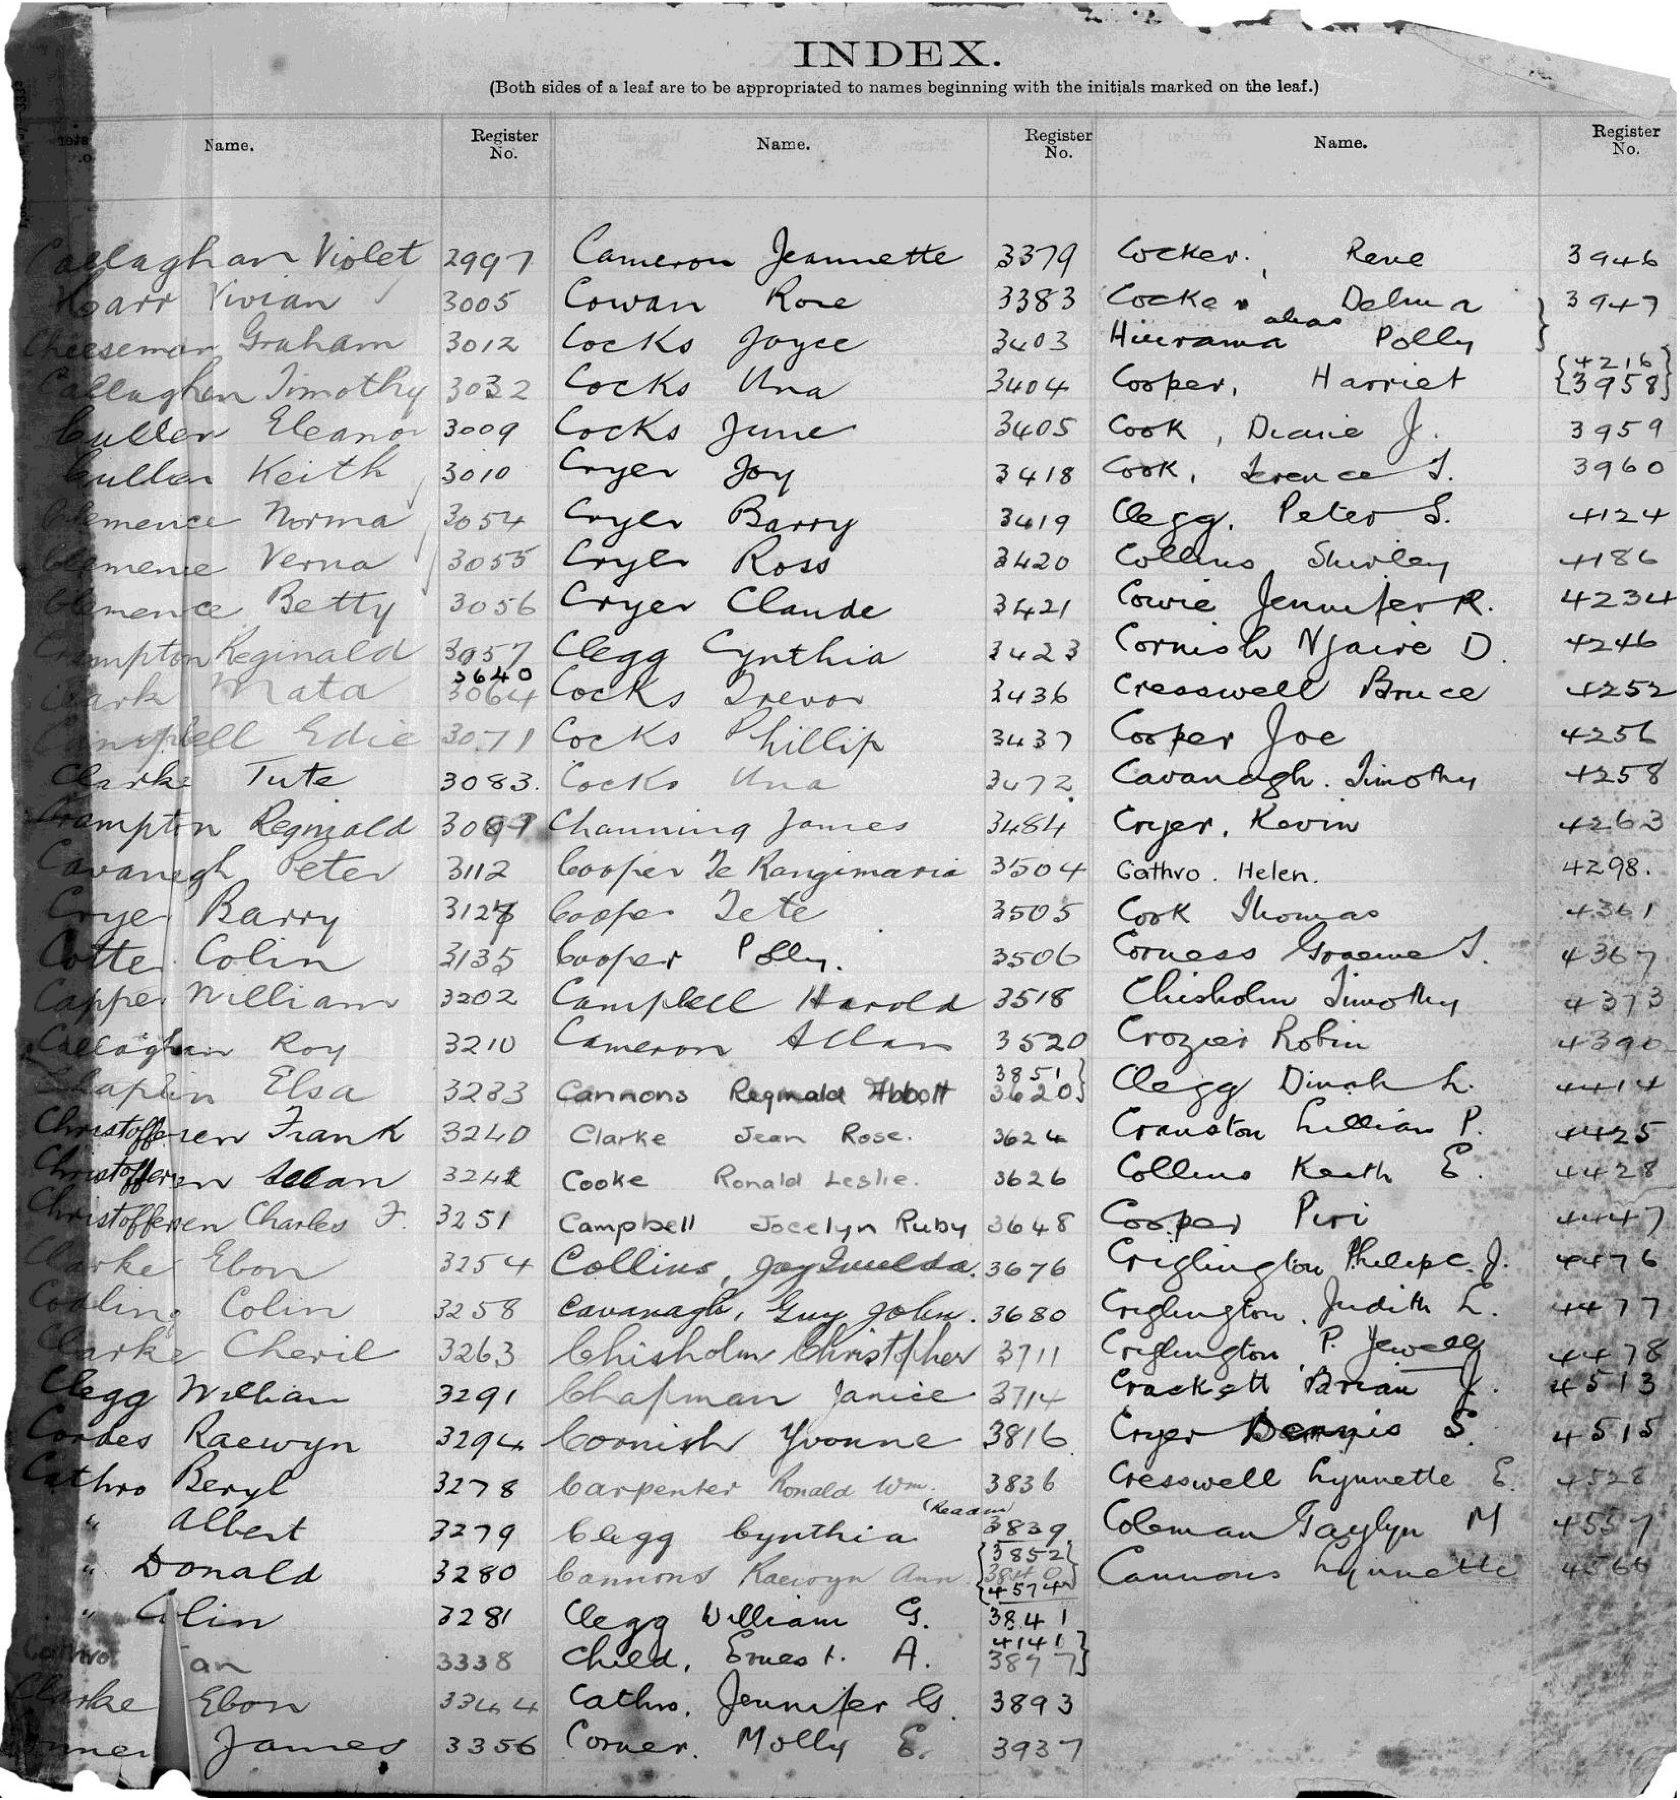 INDEX.
(Both sides of a leaf are to be appropriated to names beginning with the initials marked on the leaf.)
Name. Register No.
Callaghan Violet 2997
Carr Vivian 3005
Cheeseman Graham 3012
Callaghan Timothy 3032
Cullen Eleanor 3009
Cullen Keith 3010
Clemence Norma 3054
Clemence Verna 3055
Clemence Betty 3056
Crampton Reginald 3057
3640
Clark Mata 3064
Campbell Edie 3071
Clarke Tute 3083.
Crampton Reginald
Cavanagh Peter 3112
Cryer Barry
Cotter Colin 3135
Capper William 3202
Callaghan Roy 3210
Chaplin Elsa 3233
Christoffersen Frank 3240
Christoffersen Allan 3241
Christoffersen Charles F. 3251
Clarke Ebon 3254
Codling Colin 3258
Clarke Cheril 3263
Clegg William 3291
Cordes Raewyn 3294
Cathro Beryl 3278
" Albert 3279
" Donald 3280
" Colin 3281
Cathro an 3338
Clarke Ebon 3344
James 3356
Name. Register No.
Cameron Jeannette 3379
Cowan Rose 3383
Cocks Joyce 3403
Cocks Una 3404
Cocks June 3405
Cryer Joy 3418
Cryer Barry 3419
Cryer Ross 3420
Cryer Claude 3421
Clegg Cynthia 3423
Cocks Trevor 3436
Cocks Phillip 3437
Cocks Una 3472
Channing James 3484
Cooper Te Rangimaria 3504
Cooper Tete 3505
Cooper Polly. 3506
Campbell Harold 3518
Cameron Allan 3520
3851
Cannons Reginald Abbott 3620
Clarke Jean Rose. 3624
Cooke Ronald Leslie. 3626
Campbell Jocelyn Ruby 3648
Collins, Joy Imelda. 3676
Cavanagh, Guy John. 3680
Chisholm Christpher 3711
Chapman Janice 3714
Cornish Yvonne 3816
Carpenter Ronald Wm. 3836
(Readm)
Clegg Cynthia 3839
3852
Cannons Raewyn Ann 3840
4574
Clegg William G. 3841
4141
Child, Ernest. A. 3877
Cathro, Jennifer G. 3893
Corner. Molly E. 3937
Name. Register No.
Cocker, Rene 3946
Cocker Delma 3947
alias
Hiurama Polly
4216
Cooper, Harriet 3958
Cook, Diane J. 3959
Cook, Terence T. 3960
Clegg, Peter S. 4124
Collins Shirley 4186
Cowie Jennifer R. 4234
Cornish Ngaire D. 4246
Cresswell Bruce 4252
Cooper Joe 4256
Cavanagh. Timothy 4258
Cryer, Kevin 4263
Cathro. Helen. 4298.
Cook Thomas 4361
Corness Graeme T. 4367
Chisholm Timothy 4373
Crozier Robin 4390
Clegg Dinah L. 4414
Cranston Lillian P. 4425
Collins Keith E. 4428
Cooper Piri 4447
Criglington Philip C. J. 4476
Criglington, Judith L. 4477
Criglington, P. Jewell 4478
Crackett Brian J. 4513
Cryer Dennis S. 4515
Cresswell Lynnette E. 4528
Coleman Gaylyn M 4557
Cannons Lynnette 4566